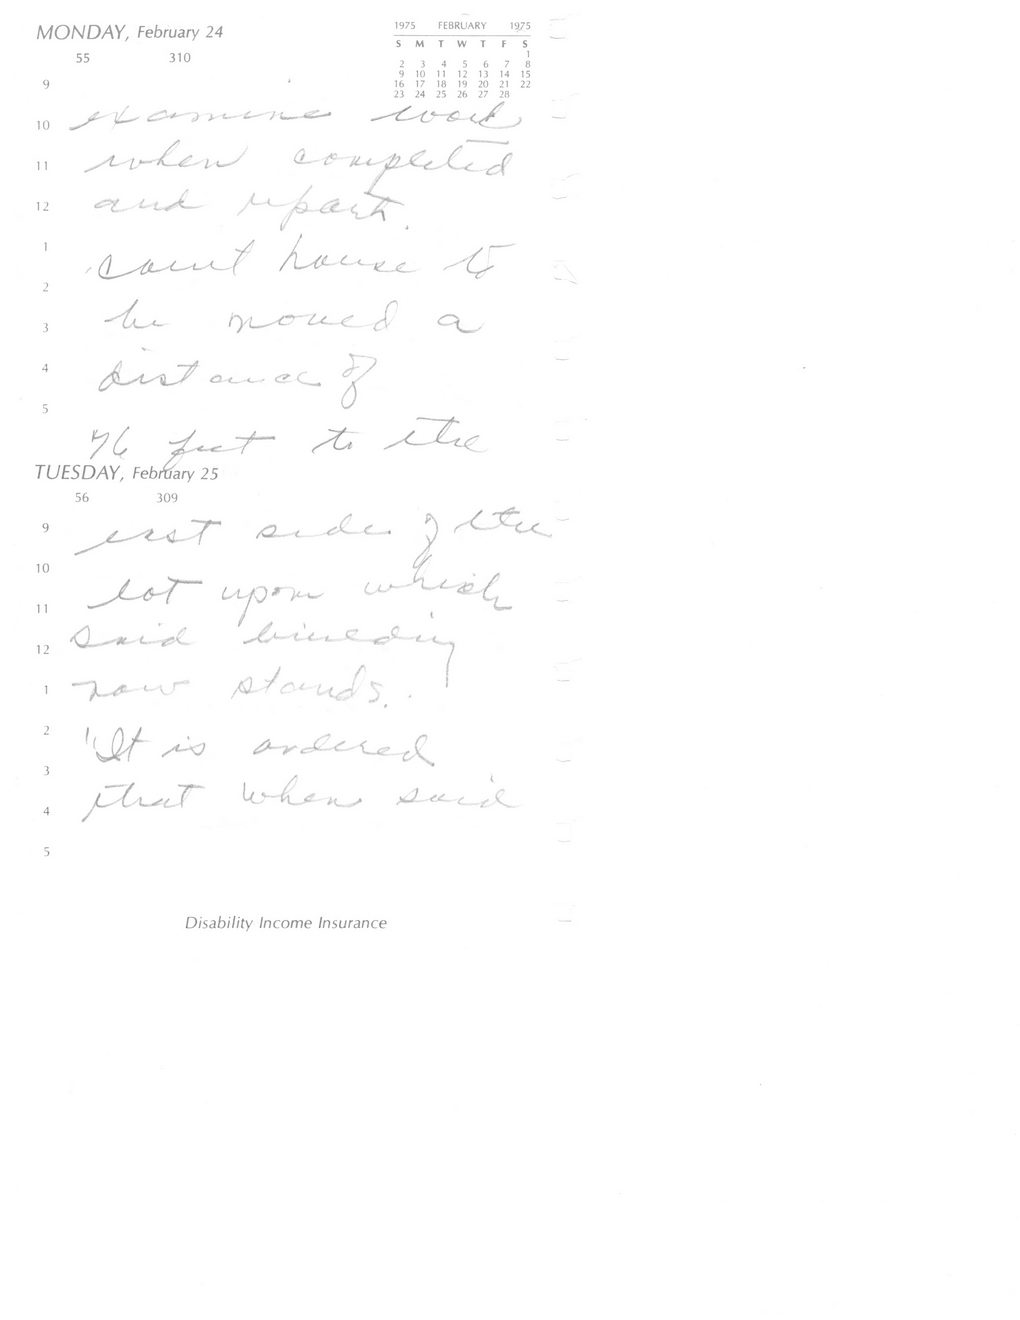 MONDAY, February 24
55 310
1975 FEBRUARY 1975
S M T W T F S
1
2 3 4 5 6 7 8
9 10 11 12 13 14 15
16 17 18 19 20 21 22
23 24 25 26 27 28
9
10 examine work
11 when completed
12 and report.
1 court house to
2
3 be moved a
4 distance of
5
76 feet to the
TUESDAY, February 25
56 309
9 east side of the
10
11 lot upon which
12 said building
1 now stands.
2 "It is ordered
3
4 that when said
5
Disability Income Insurance